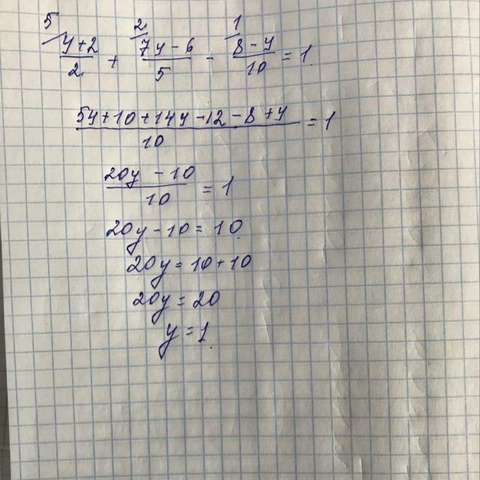 5 2 1
y+2/2 + 7y-6/5 - 8-y/10 = 1
5y+10+14y-12-8+y/10 = 1
20y-10/10 = 1
20y-10=10
20y=10+10
20y=20
y=1